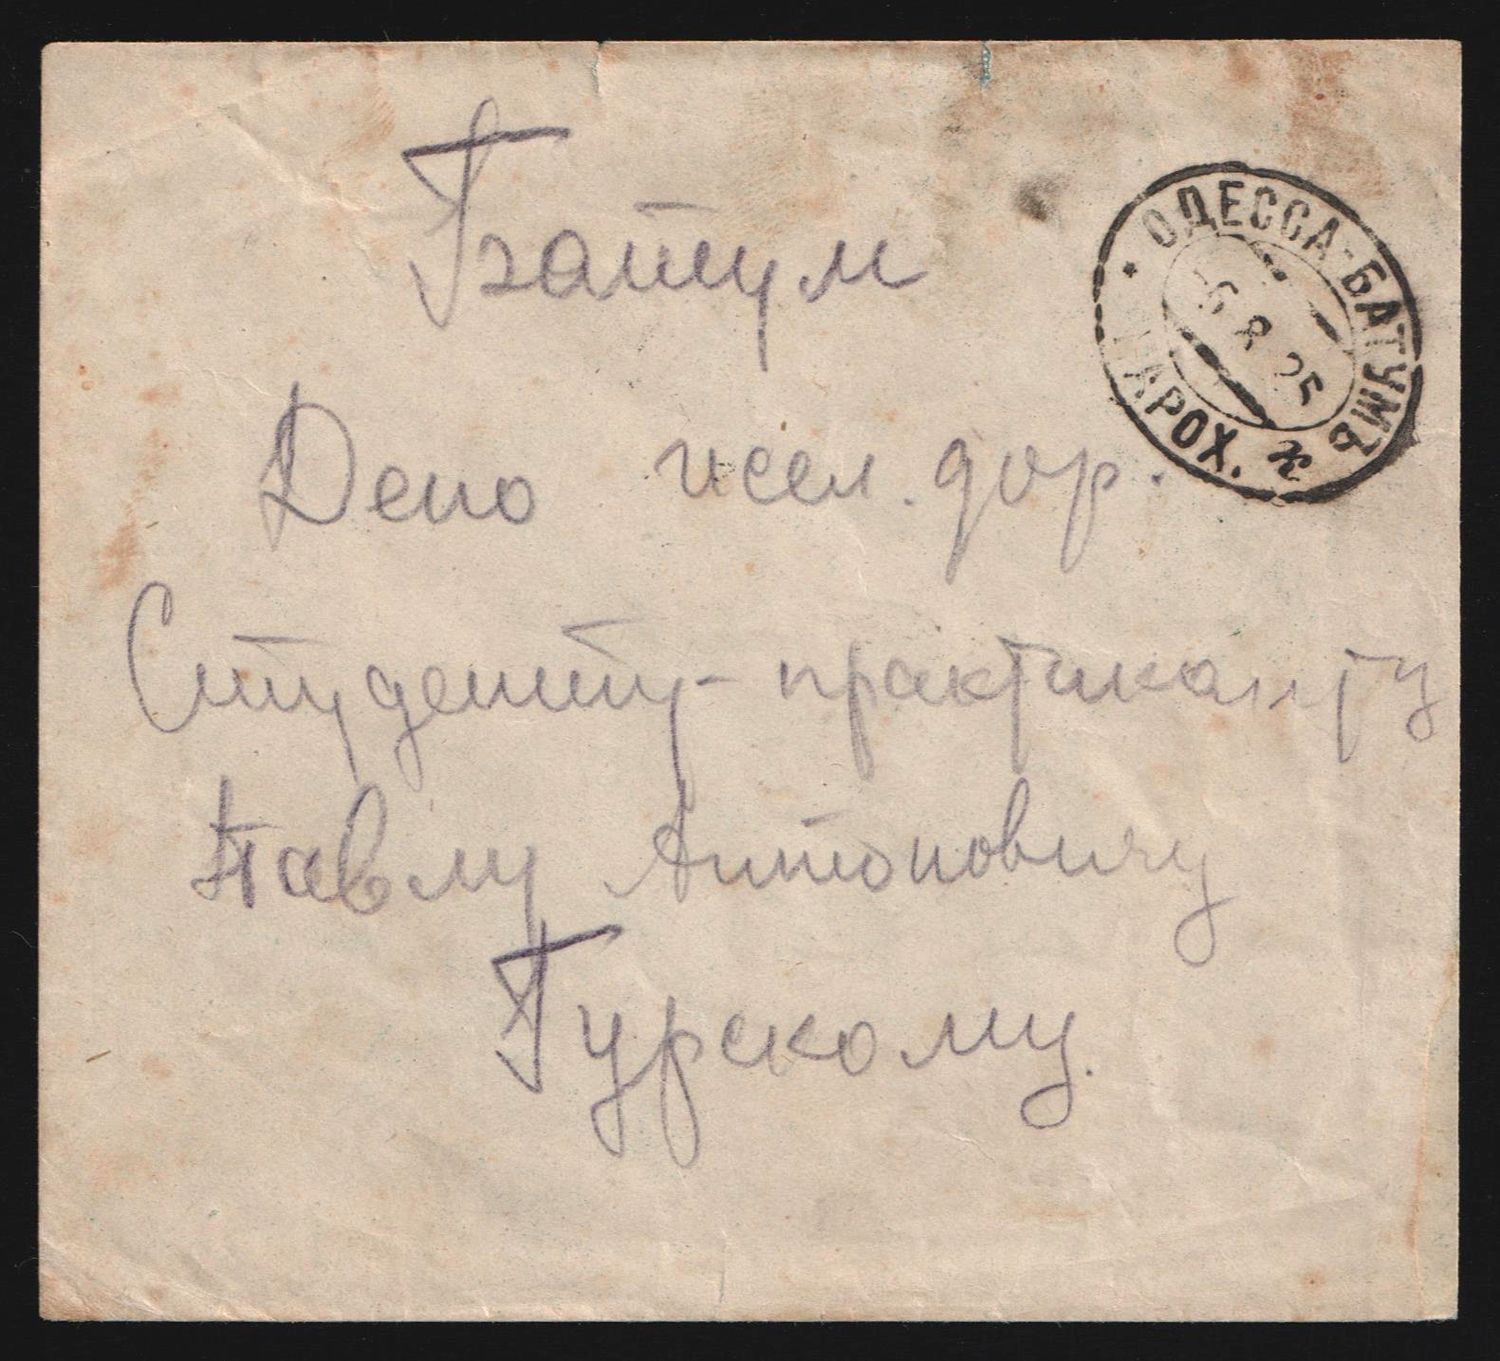 Батум
ОДЕССА-БАТУМЪ
-6.8.25
ПАРОХ. ж
Депо жел. дор.
Студенту-практиканту
Павлу Антоновичу
Гурскому.